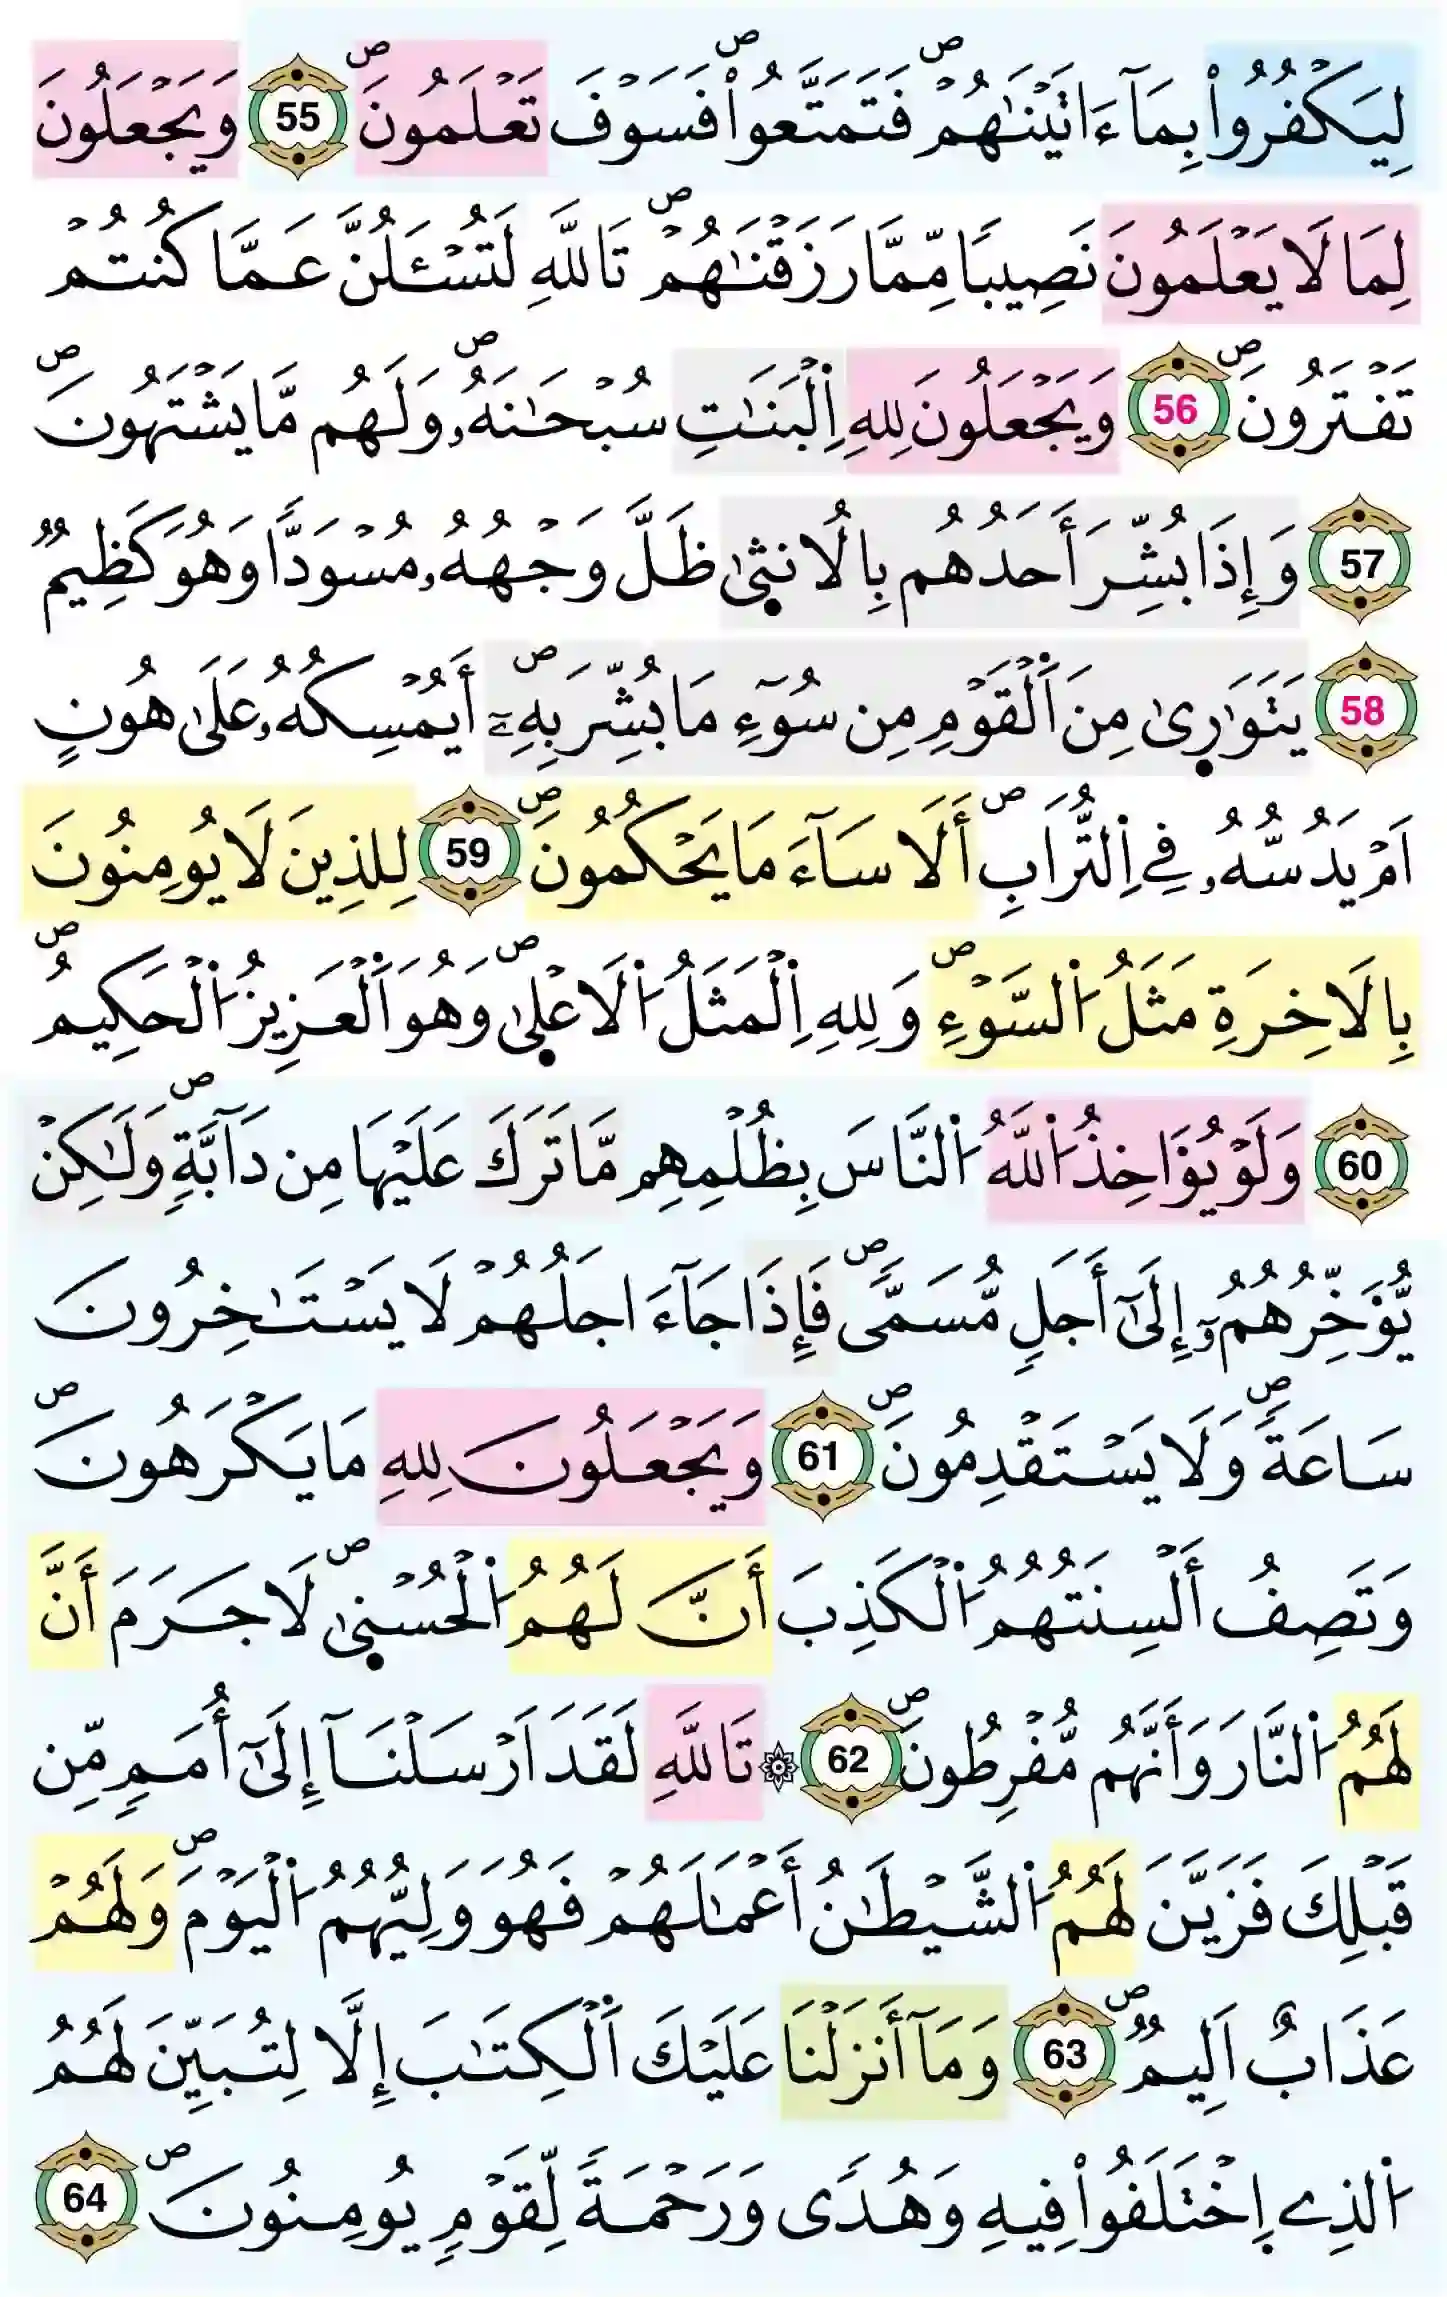 لِيَكْفُرُواْ بِمَآ ءَاتَيْنَٰهُمْ ۖ فَتَمَتَّعُواْ فَسَوْفَ تَعْلَمُونَ ۖ 55 وَيَجْعَلُونَ
لِمَا لَا يَعْلَمُونَ نَصِيباً مِّمَّا رَزَقْنَٰهُمْ ۖ تَاللَّهِ لَتُسْـَٔلُنَّ عَمَّا كُنتُمْ
تَفْتَرُونَ ۖ 56 وَيَجْعَلُونَ لِلهِ اِ۬لْبَنَٰتِ سُبْحَٰنَهُۥ ۖ وَلَهُم مَّا يَشْتَهُونَ ۖ
57 وَإِذَا بُشِّرَ أَحَدُهُم بِالُانث۪ىٰ ظَلَّ وَجْهُهُۥ مُسْوَدّاً وَهُوَ كَظِيمٌ
58 يَتَوَٰر۪ىٰ مِنَ اَ۬لْقَوْمِ مِن سُوٓءِ مَا بُشِّرَ بِهِۦٓ ۖ أَيُمْسِكُهُۥ عَلَىٰ هُونٍ
اَمْ يَدُسُّهُۥ فِے اِ۬لتُّرَابِ ۖ أَلَا سَآءَ مَا يَحْكُمُونَ ۖ 59 لِلذِينَ لَا يُومِنُونَ
بِالَاخِرَةِ مَثَلُ اُ۬لسَّوْءِ ۖ وَلِلهِ اِ۬لْمَثَلُ اُ۬لَاعْل۪ىٰ ۖ وَهُوَ اَ۬لْعَزِيزُ اُ۬لْحَكِيمُ ۖ
60 وَلَوْ يُؤَاخِذُ اُ۬للَّهُ اُ۬لنَّاسَ بِظُلْمِهِم مَّا تَرَكَ عَلَيْهَا مِن دَآبَّةٍ ۖ وَلَٰكِنْ
يُّؤَخِّرُهُمُۥٓ إِلَىٰٓ أَجَلٍ مُّسَمّىً ۖ فَإِذَا جَآءَ اجَلُهُمْ لَا يَسْتَٰخِرُونَ
سَاعَةً ۖ وَلَا يَسْتَقْدِمُونَ ۖ 61 وَيَجْعَلُونَ لِلهِ مَا يَكْرَهُونَ ۖ
وَتَصِفُ أَلْسِنَتُهُمُ اُ۬لْكَذِبَ أَنَّ لَهُمُ اُ۬لْحُسْن۪ىٰ ۖ لَا جَرَمَ أَنَّ
لَهُمُ اُ۬لنَّارَ وَأَنَّهُم مُّفْرِطُونَ ۖ 62 ۞ تَاللَّهِ لَقَدَ اَرْسَلْنَآ إِلَىٰٓ أُمَمٍ مِّن
قَبْلِكَ فَزَيَّنَ لَهُمُ اُ۬لشَّيْطَٰنُ أَعْمَٰلَهُمْ فَهُوَ وَلِيُّهُمُ اُ۬لْيَوْمَ ۖ وَلَهُمْ
عَذَابٌ اَلِيمٌ ۖ 63 وَمَآ أَنزَلْنَا عَلَيْكَ اَ۬لْكِتَٰبَ إِلَّا لِتُبَيِّنَ لَهُمُ
اُ۬لذِے اِ۪خْتَلَفُواْ فِيهِ وَهُدىً وَرَحْمَةً لِّقَوْمٍ يُومِنُونَ ۖ 64